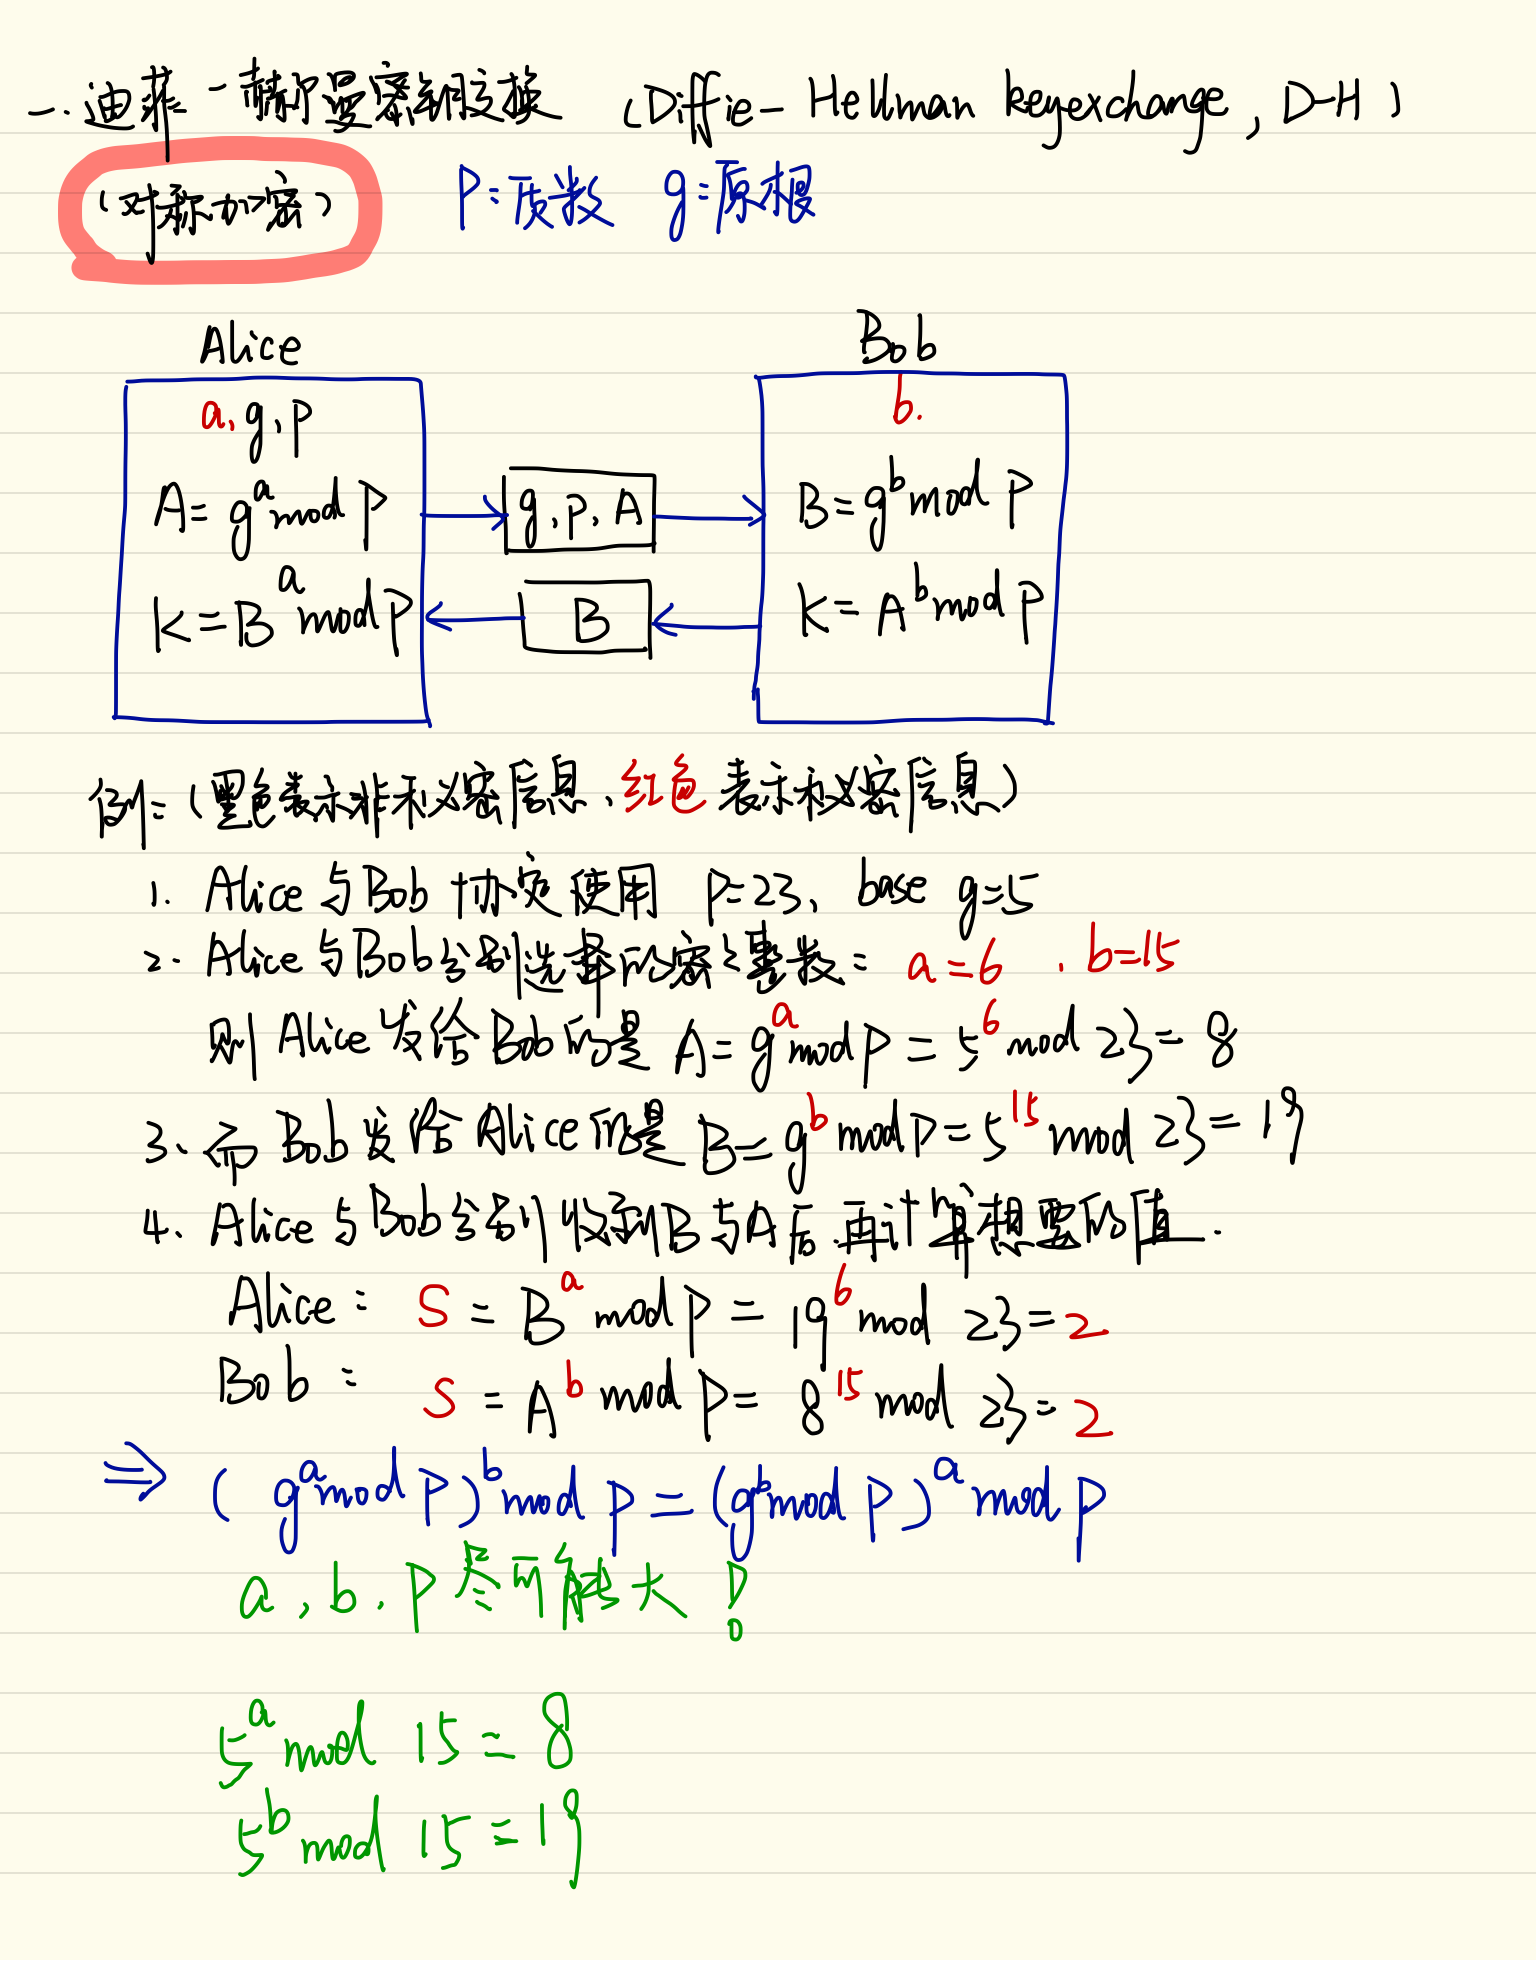 一.迪菲-赫尔曼密钥交换 (Diffie-Hellman keyexchange, D-H)
(对称加密) P:质数 g:原根
Alice
a, g, P
A = g^a mod P
K = B^a mod P
g, P, A
B
Bob
b.
B = g^b mod P
K = A^b mod P
例:(黑色表示非私密信息、红色表示私密信息)
1. Alice与Bob协定使用 P=23、base g=5
2. Alice与Bob分别选择的密之整数: a=6 . b=15
则Alice发给Bob的是 A = g^a mod P = 5^6 mod 23 = 8
3、而Bob发给Alice的是 B = g^b mod P = 5^15 mod 23 = 19
4、Alice与Bob分别收到B与A后.再计算想要的值.
Alice: S = B^a mod P = 19^6 mod 23 = 2
Bob: S = A^b mod P = 8^15 mod 23 = 2
⇒ (g^a mod P)^b mod P = (g^b mod P)^a mod P
a, b, P 尽可能大!
5^a mod 15 = 8
5^b mod 15 = 19